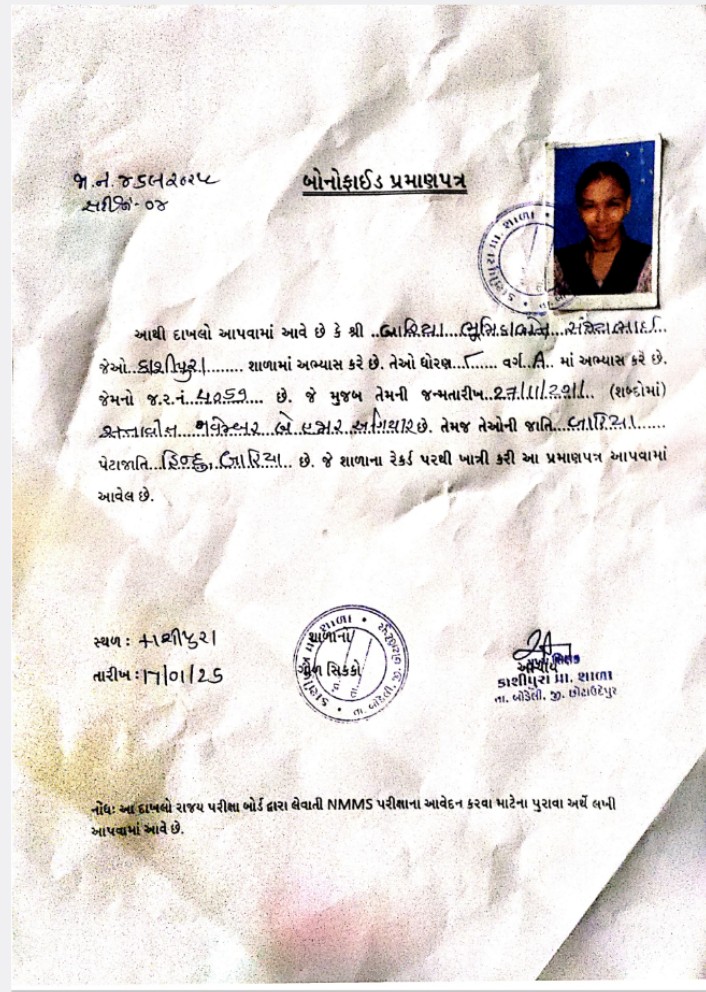 જા.ન. ૪૩૯૨૦૨૫
બોનોફાઈડ પ્રમાણપત્ર
આથી દાખલો આપવામાં આવે છે કે શ્રી ..બારિયા...ભુમિકાબેન...
જેઓ..કાશીપુરા........ શાળામાં અભ્યાસ કરે છે. તેઓ ધોરણ...૮..... વર્ગ..A.. માં અભ્યાસ કરે છે.
જેમનો જ.ર.નં... છે. જે મુજબ તેમની જન્મતારીખ... (શબ્દોમાં)
સત્તાવીસ...નવેમ્બર...બે હજાર અગિયાર છે. તેમજ તેઓની જાતિ...બારિયા......
પેટાજાતિ...હિન્દુ, બારિયા.. છે. જે શાળાના રેકર્ડ પરથી ખાત્રી કરી આ પ્રમાણપત્ર આપવામાં
આવેલ છે.
સ્થળ : કાશીપુરા
તારીખ : 17/01/25
શાળાનો
ગોળ સિક્કો
આચાર્ય
કાશીપુરા પ્રા. શાળા
તા. બોડેલી, જી. છોટાઉદેપુર
નોંધઃ આ દાખલો રાજ્ય પરીક્ષા બોર્ડ દ્વારા લેવાતી NMMS પરીક્ષાના આવેદન કરવા માટેના પુરાવા અર્થે લખી
આપવામાં આવે છે.